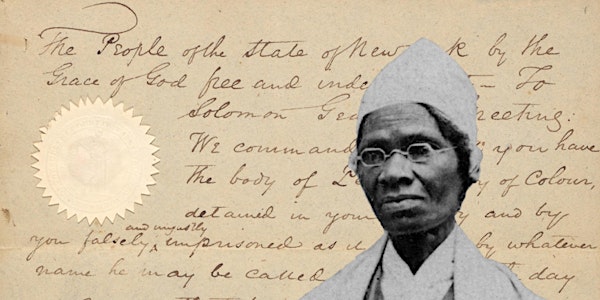 The People of the State of New k by the
Grace of God free and inde t – To
Solomon Ge reeting:
We command you have
the body of y of Colour,
detained in your y and by
and unjustly
you falsely ‸ imprisoned as it by whatever
name he may be called day